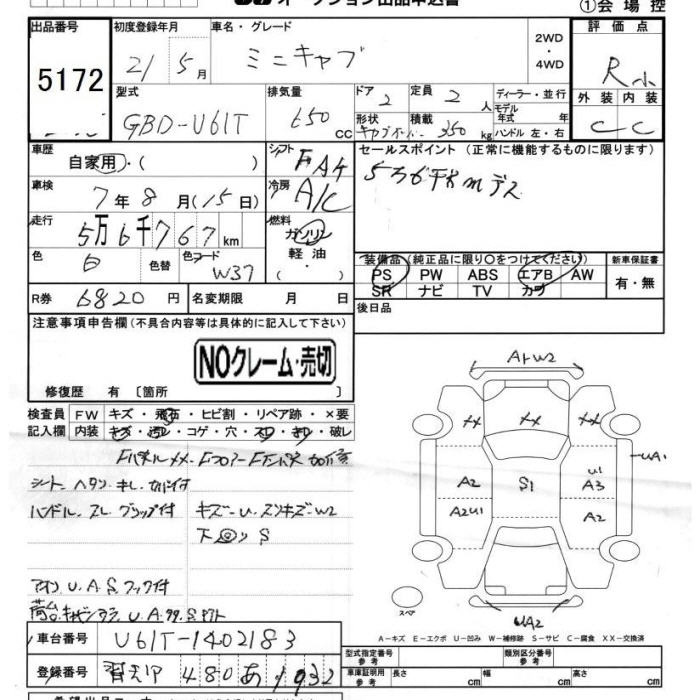 オークション出品申込書
①会場控
出品番号
5172
初度登録年月
21 5月
車名・グレード
ミニキャブ
2WD
・
4WD
評価点
R
外装 内装
C C
型式
GBD-U61T
排気量
650 CC
ドア
2
定員
2 人
形状
積載
350 kg
ディーラー・並行
モデル
年式 年
ハンドル 左・右
車歴
自家用・( )
シフト
FA4
セールスポイント (正常に機能するものに限ります)
車検
7年8月(15日)
冷房
A/C
走行
5万6千767km
燃料
ガソリン
軽油
・( )
色
白
色替
色コード
W37
装備品(純正品に限り○をつけてください)
PS PW ABS エアB AW
SR ナビ TV カワ
新車保証書
有・無
R券 6820円
名変期限 月 日
後日品
注意事項申告欄(不具合内容等は具体的に記入して下さい)
NOクレーム・売切
修復歴 有 〔箇所
検査員 FW キズ・飛石・ヒビ割・リペア跡・×要
記入欄 内装 キズ・汚レ・コゲ・穴・スレ・キレ・破レ
シート ヘタリ キレ カバー付
ハンドル スレ グリップ付
キズ〜U
W2
S
U.A.S フック付
A1 W2
XX XX XX
UA1
A2 S1 U1 A3
A2U1 A2
UA2
スペア
A−キズ E−エクボ U−凹み W−補修跡 S−サビ C−腐食 XX−交換済
車台番号 U61T-1402183
登録番号 480 あ 1932
型式指定番号
参考
類別区分番号
参考
車庫証明用
参考
長さ cm 幅 cm 高さ cm